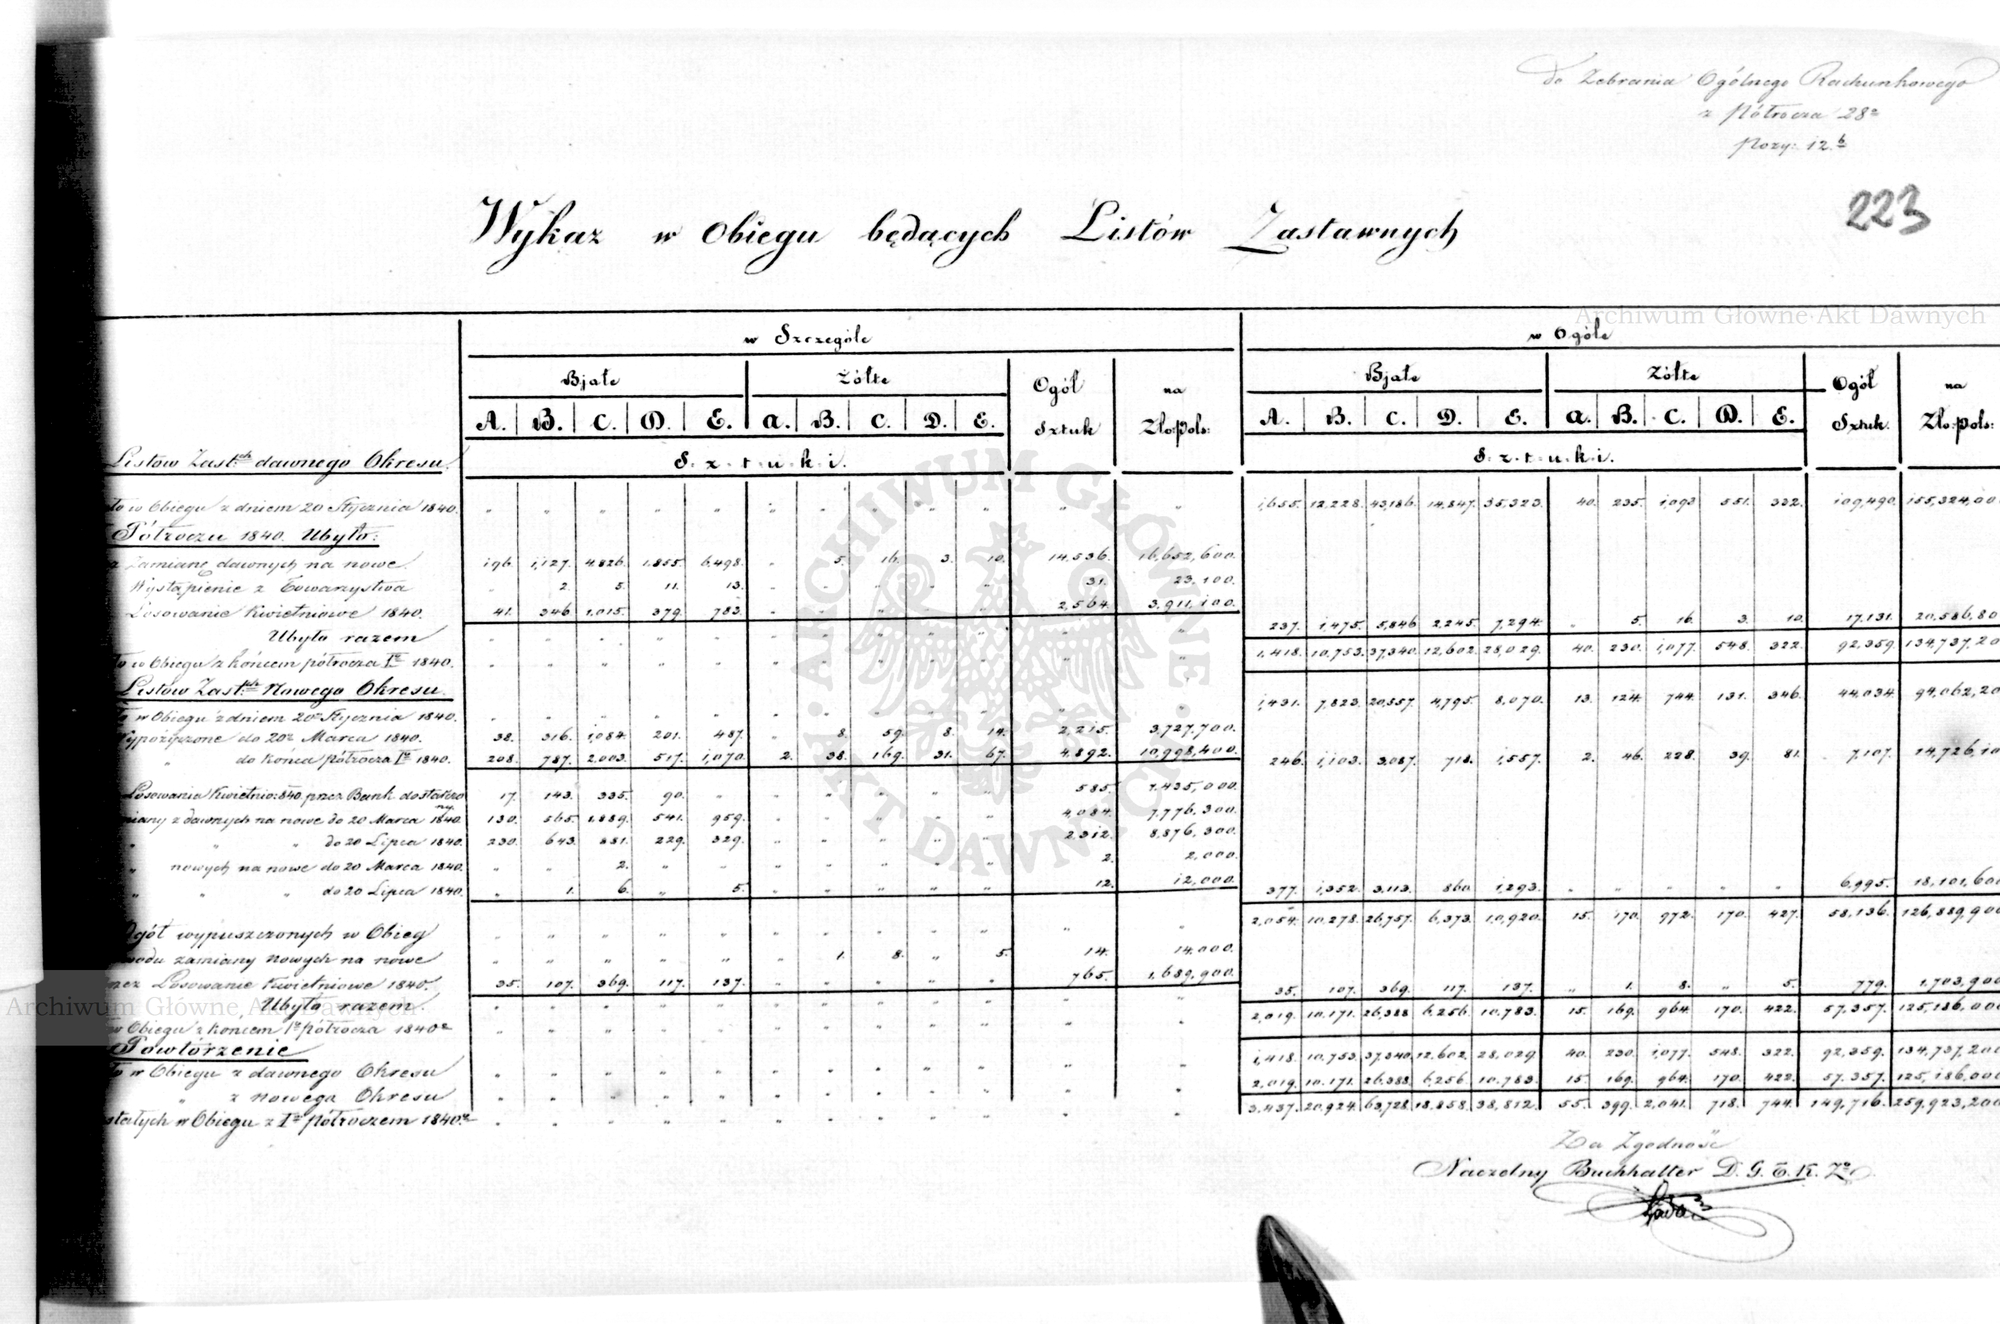 do Zebrania Ogólnego Rachunkowego
z Półrocza 28º
Pozy: 12.b
223
Wykaz w Obiegu będących Listów Zastawnych
Archiwum Główne Akt Dawnych
w Szczególe w Ogóle
Bjałe Żółte Ogół Sztuk na Zło:pols: Bjałe Żółte Ogół Sztuk na Zło:pols:
A. B. C. D. E. A. B. C. D. E. A. B. C. D. E. A. B. C. D. E.
S.z.t.u.k.i. S.z.t.u.k.i.
Listów Zast:ch dawnego Okresu.
w Obiegu z dniem 20 Stycznia 1840. 1,655. 12,228. 43,186. 14,847. 35,323. 40. 235. 1,093. 551. 332. 109,490. 155,324,00
Półroczu 1840. Ubyło:
Zamianę dawnych na nowe 196. 1,127. 4,826. 1,855. 6,498. „ 5. 16. 3. 10. 14,536. 16,652,600.
Wystąpienie z Towarzystwa „ 2. 5. 11. 13. „ „ „ „ „ 31. 23,100.
Losowanie Kwietniowe 1840. 41. 346. 1,015. 379. 783. „ „ „ „ „ 2,564. 3,911,100.
Ubyło razem 237. 1,475. 5,846. 2,245. 7,294. „ 5. 16. 3. 10. 17,131. 20,586,80
w Obiegu z końcem półrocza Igo 1840. 1,418. 10,753. 37,340. 12,602. 28,029. 40. 230. 1,077. 548. 322. 92,359. 134,737,20
Listów Zast:ch Nowego Okresu.
w Obiegu z dniem 20º Stycznia 1840. 1,431. 7,823. 20,557. 4,795. 8,070. 13. 124. 744. 131. 346. 44,034. 94,062,20
Wypożyczone do 20º Marca 1840. 38. 316. 1,084. 201. 487. „ 8. 59. 8. 14. 2,215. 3,727,700.
„ do końca półrocza Igo 1840. 208. 787. 2,003. 517. 1,070. 2. 38. 169. 31. 67. 4,892. 10,998,400. 246. 1,103. 3,087. 718. 1,557. 2. 46. 228. 39. 81. 7,107. 14,726,10
Losowania Kwietnio: 840. przez Bank dostarczo ny. 17. 143. 335. 90. „ „ „ „ „ „ 585. 1,435,000.
z dawnych na nowe do 20 Marca 1840. 130. 565. 1,889. 541. 959. „ „ „ „ „ 4,084. 7,776,300.
„ „ „ do 20 Lipca 1840. 230. 643. 881. 229. 329. „ „ „ „ „ 2,312. 8,876,300.
„ nowych na nowe do 20 Marca 1840. „ „ 2. „ „ „ „ „ „ „ 2. 2,000.
„ „ „ do 20 Lipca 1840. „ 1. 6. „ 5. „ „ „ „ „ 12. 12,000. 377. 1,352. 3,113. 860. 1,293. „ „ „ „ „ 6,995. 18,101,60
Ogół wypuszczonych w Obieg 2,054. 10,278. 26,757. 6,373. 10,920. 15. 170. 972. 170. 427. 58,136. 126,889,90
zamiany nowych na nowe „ „ „ „ „ „ 1. 8. „ 5. 14. 14,000.
Losowanie Kwietniowe 1840. 35. 107. 369. 117. 137. „ „ „ „ „ 765. 1,689,900.
Ubyło razem 35. 107. 369. 117. 137. „ 1. 8. „ 5. 779. 1,703,900
Archiwum Główne Akt Dawnych
w Obiegu z końcem 1º półrocza 1840º 2,019. 10,171. 26,388. 6,256. 10,783. 15. 169. 964. 170. 422. 57,357. 125,186,000
Powtórzenie
w Obiegu z dawnego Okresu 1,418. 10,753. 37,340. 12,602. 28,029. 40. 230. 1,077. 548. 322. 92,359. 134,737,200
„ z nowego Okresu 2,019. 10,171. 26,388. 6,256. 10,783. 15. 169. 964. 170. 422. 57,357. 125,186,000
w Obiegu z Iº półroczem 1840º 3,437. 20,924. 63,728. 18,858. 38,812. 55. 399. 2,041. 718. 744. 149,716. 259,923,200
Za Zgodność
Naczelny Buchhalter D. G. T. K. Zº
ARCHIWUM GŁÓWNE AKT DAWNYCH